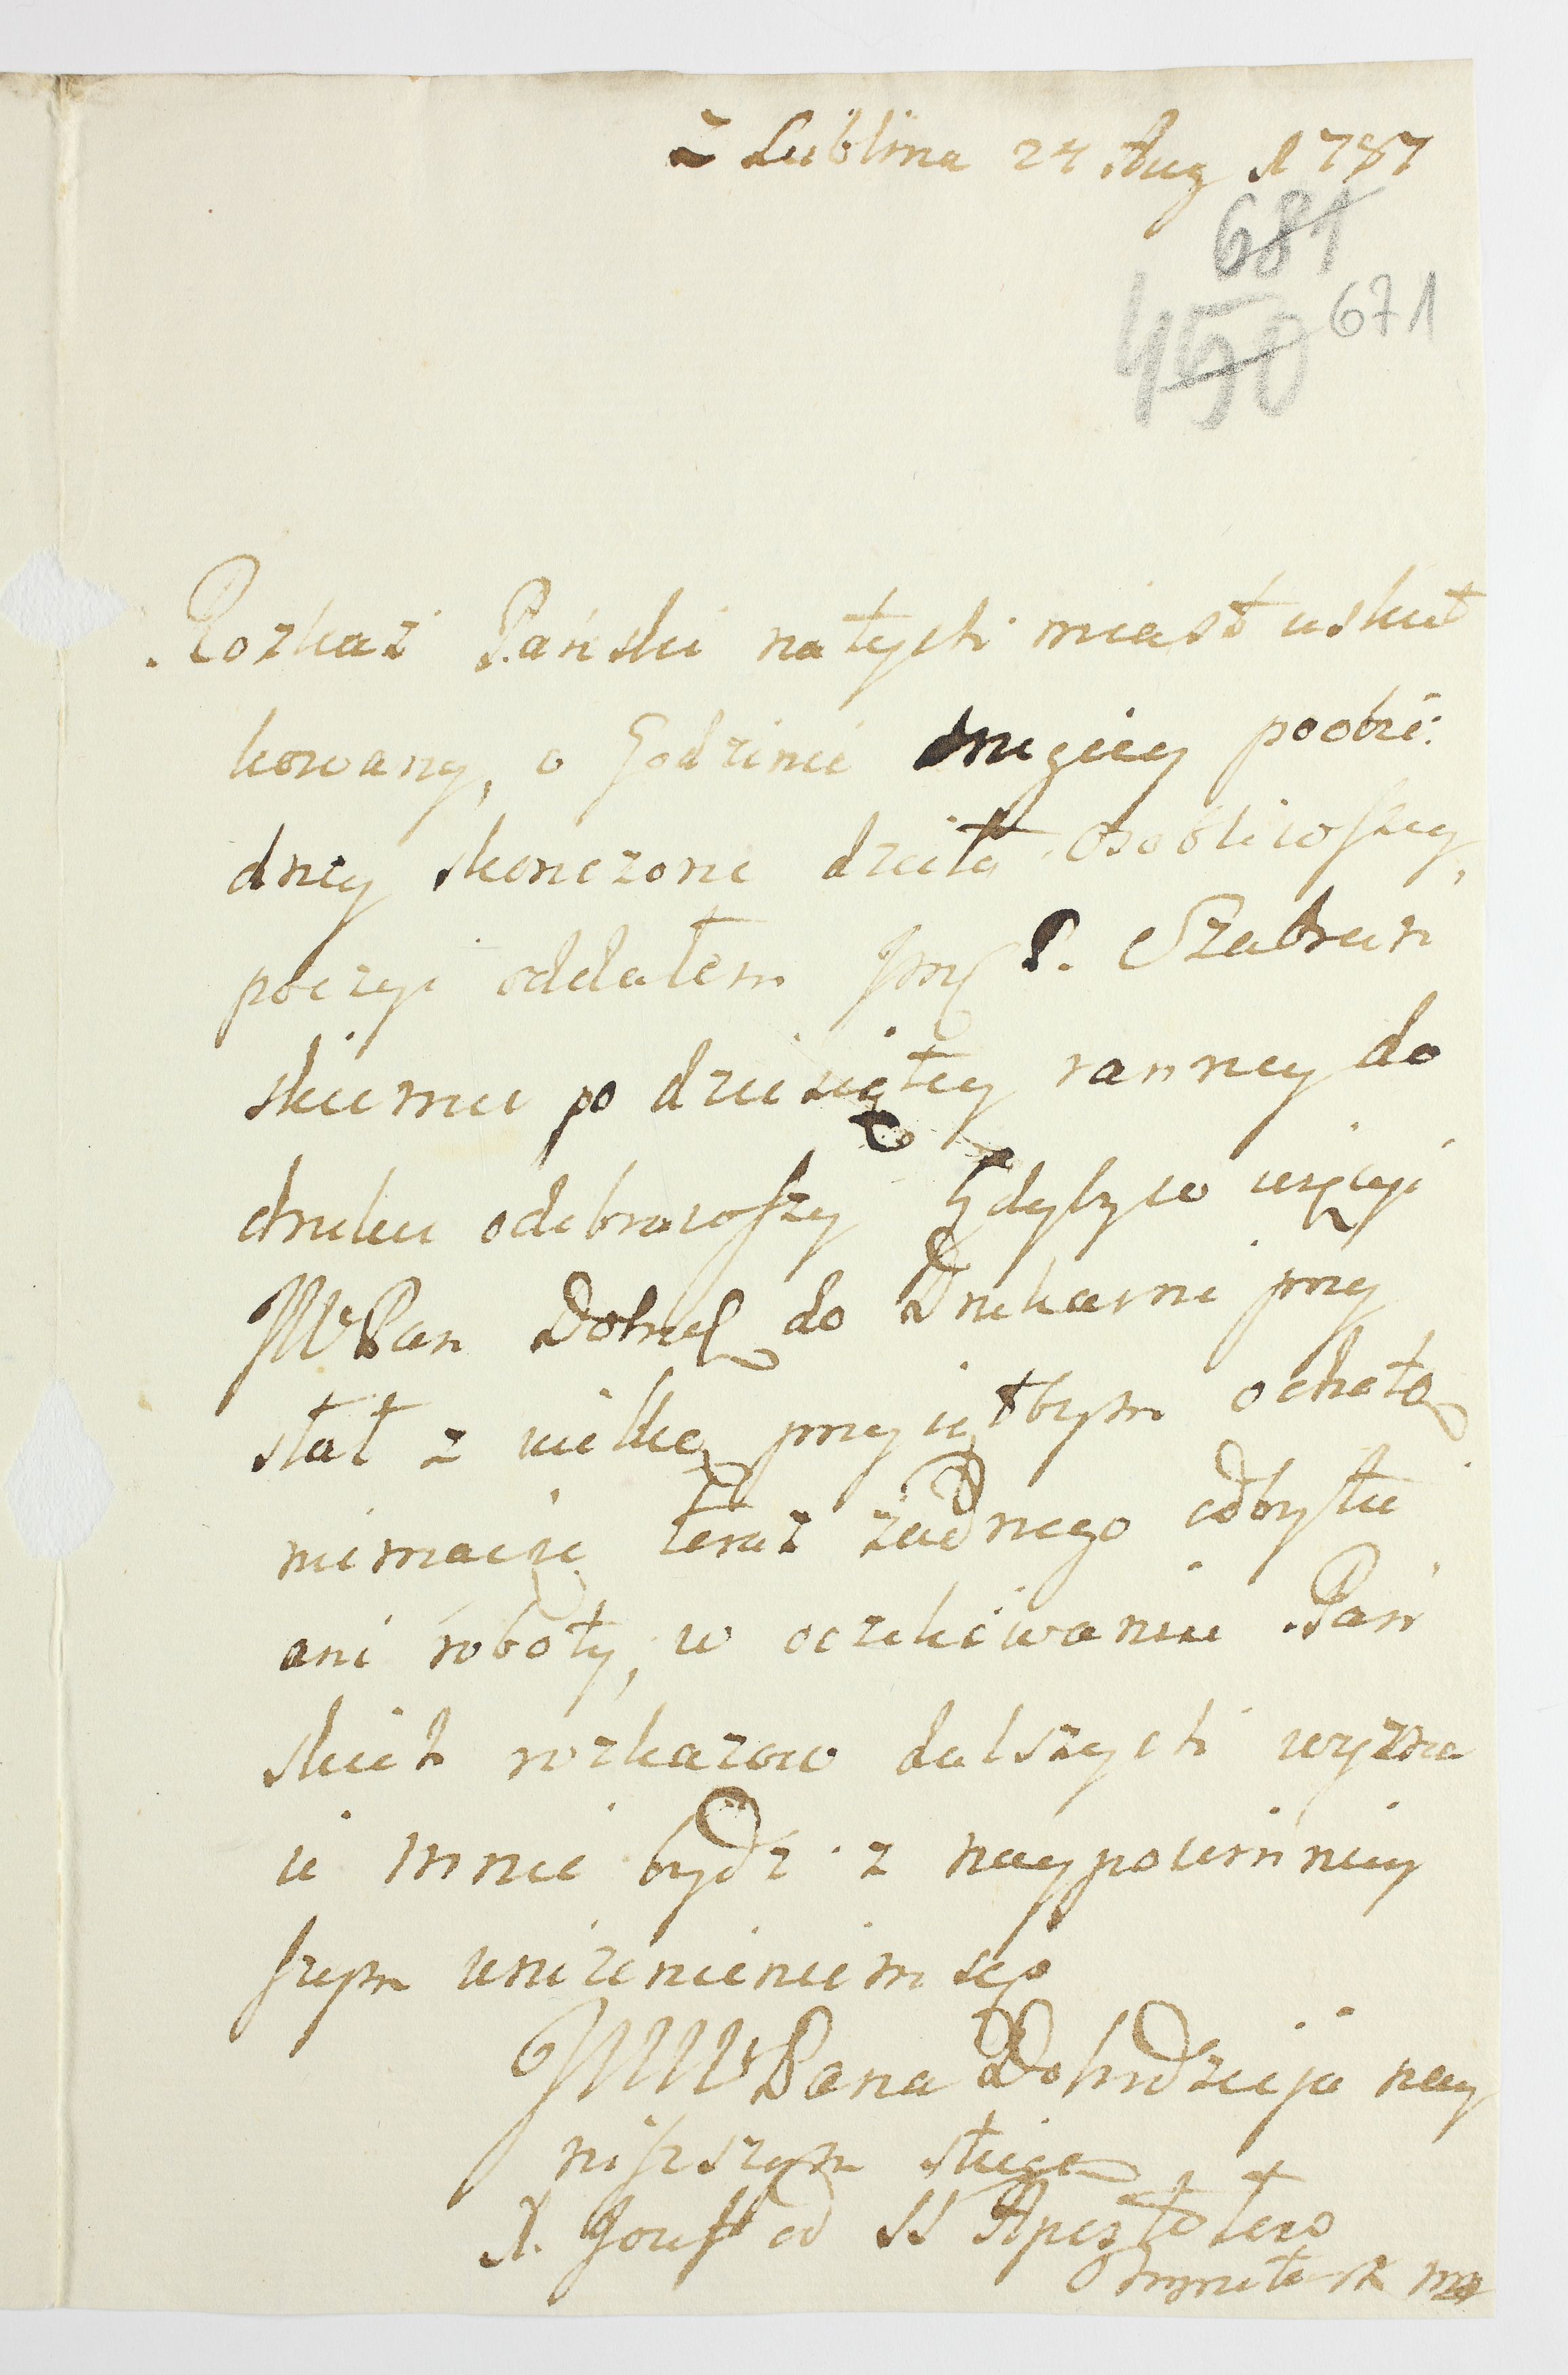 Z Lublina 24 Aug 1787
681
450 671
Rozkaz Pański natych miast uskut
kowany, o godzinie drugiey poobie:
dney skonczone dzieło osobliwszey,
poezyi oddałem Jmć P. Szabrań
skiemu po dziesiątey ranney do
druku odebrawszy Gdyby co więcy
JW Pan Dobrǫ do Drukarni przy
słał z wielką przyiąłbym ochotą
niemaiąc teraz żadnego odbytu
ani roboty, w oczekiwaniu Pań
skich rozkazow dalszych wyzna
ie mnie bydz z naypowinniey
szym uniżenieniem się
JWW Pana Dobrdzieja nay
niższszym sługą
X. Jozef od SS Apostołow